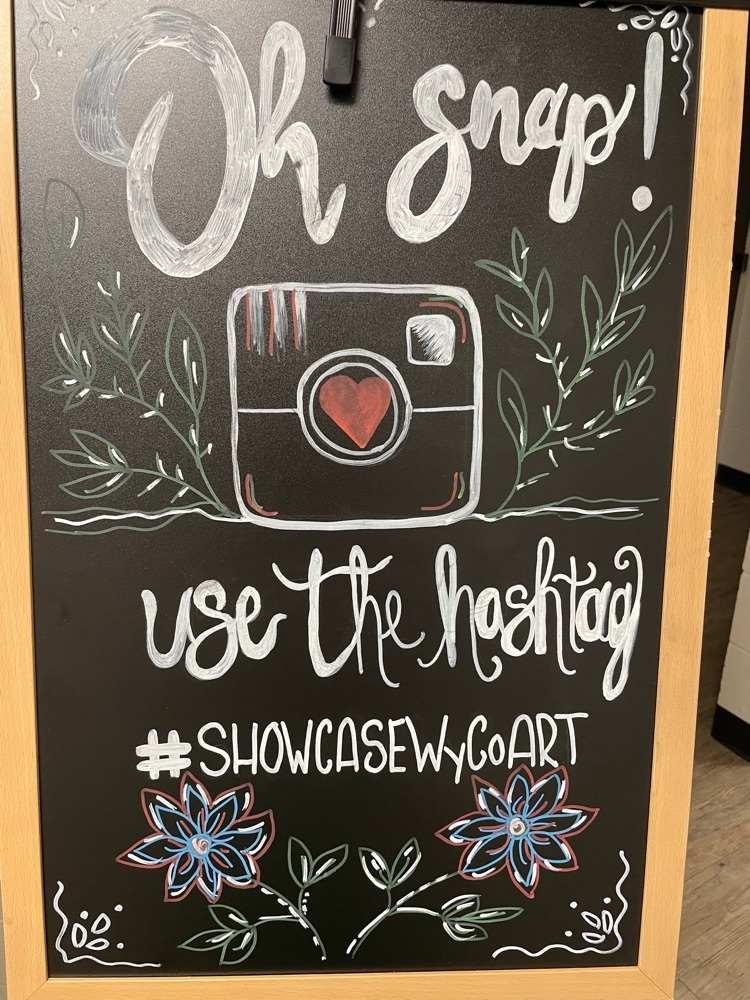 Oh snap!
use the hashtag
#SHOWCASEWyCoART